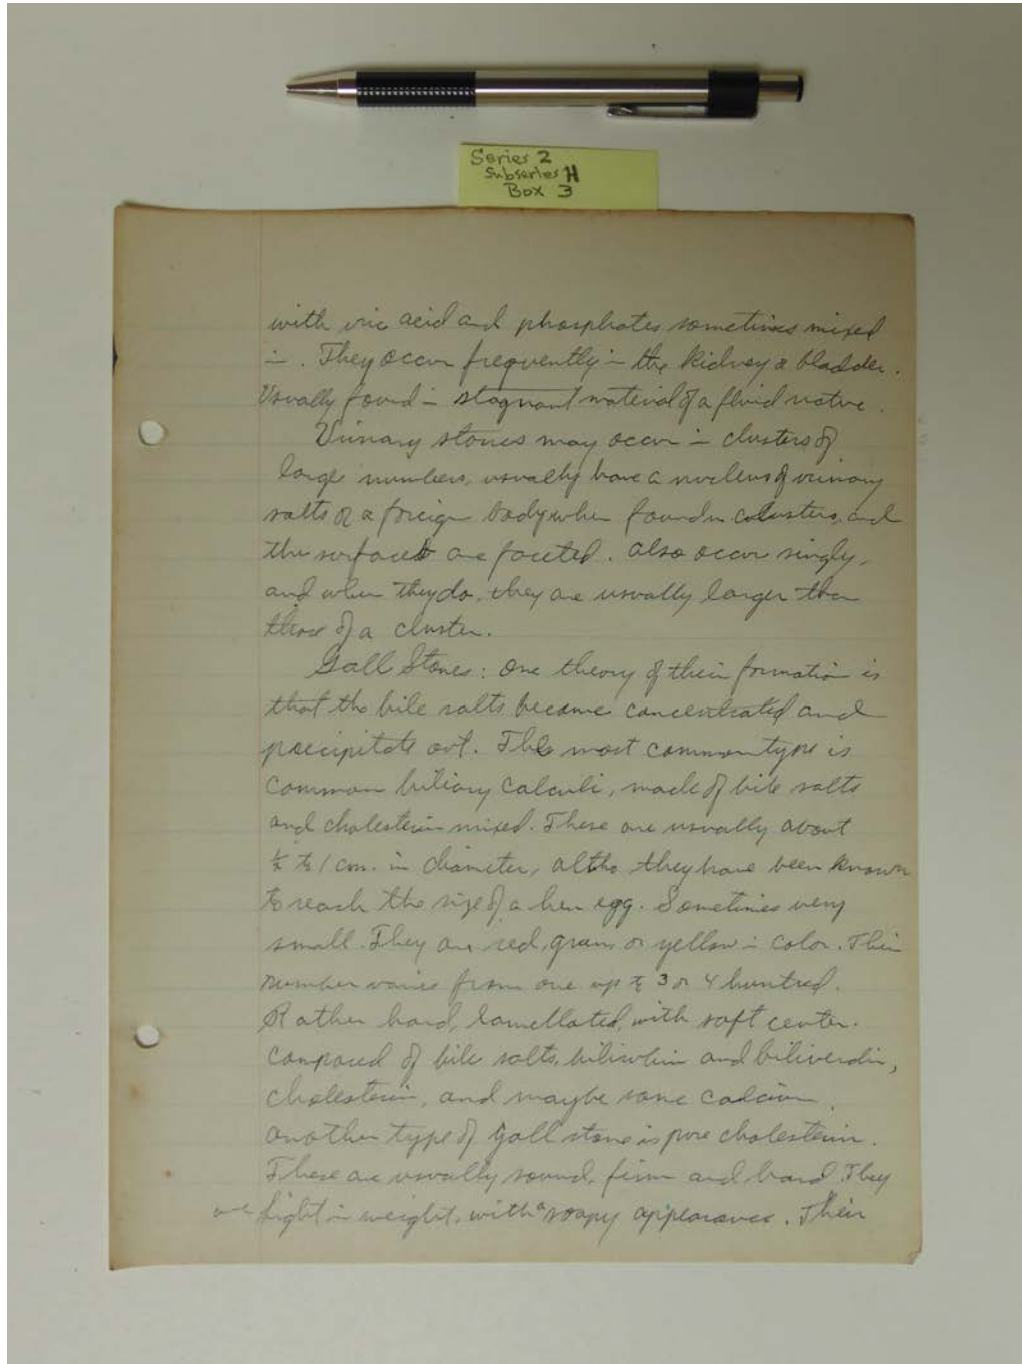 Series 2
Subseries H
Box 3
with uric acid and phosphates sometimes mixed
in. They occur frequently in the kidney & bladder.
Usually found in stagnant material of a fluid nature.
Urinary stones may occur in clusters of
large numbers, usually have a nucleus of urinary
salts or a foreign body when found in clusters, and
the surfaces are faceted. Also occur singly,
and when they do, they are usually larger than
those of a cluster.
Gall Stones: One theory of their formation is
that the bile salts become concentrated and
precipitate out. The most common type is
common biliary calculi, made of bile salts
and cholesterin mixed. These are usually about
½ to 1 cm. in diameter, altho they have been known
to reach the size of a hen egg. Sometimes very
small. They are red, green or yellow in color. Their
number varies from one up to 3 or 4 hundred.
Rather hard, lamellated, with soft center.
Composed of bile salts, bilirubin and biliverdin,
cholesterin, and maybe some calcium.
Another type of gall stone is pure cholesterin.
These are usually round, firm and hard. They
are light in weight, with a soapy appearance. Their